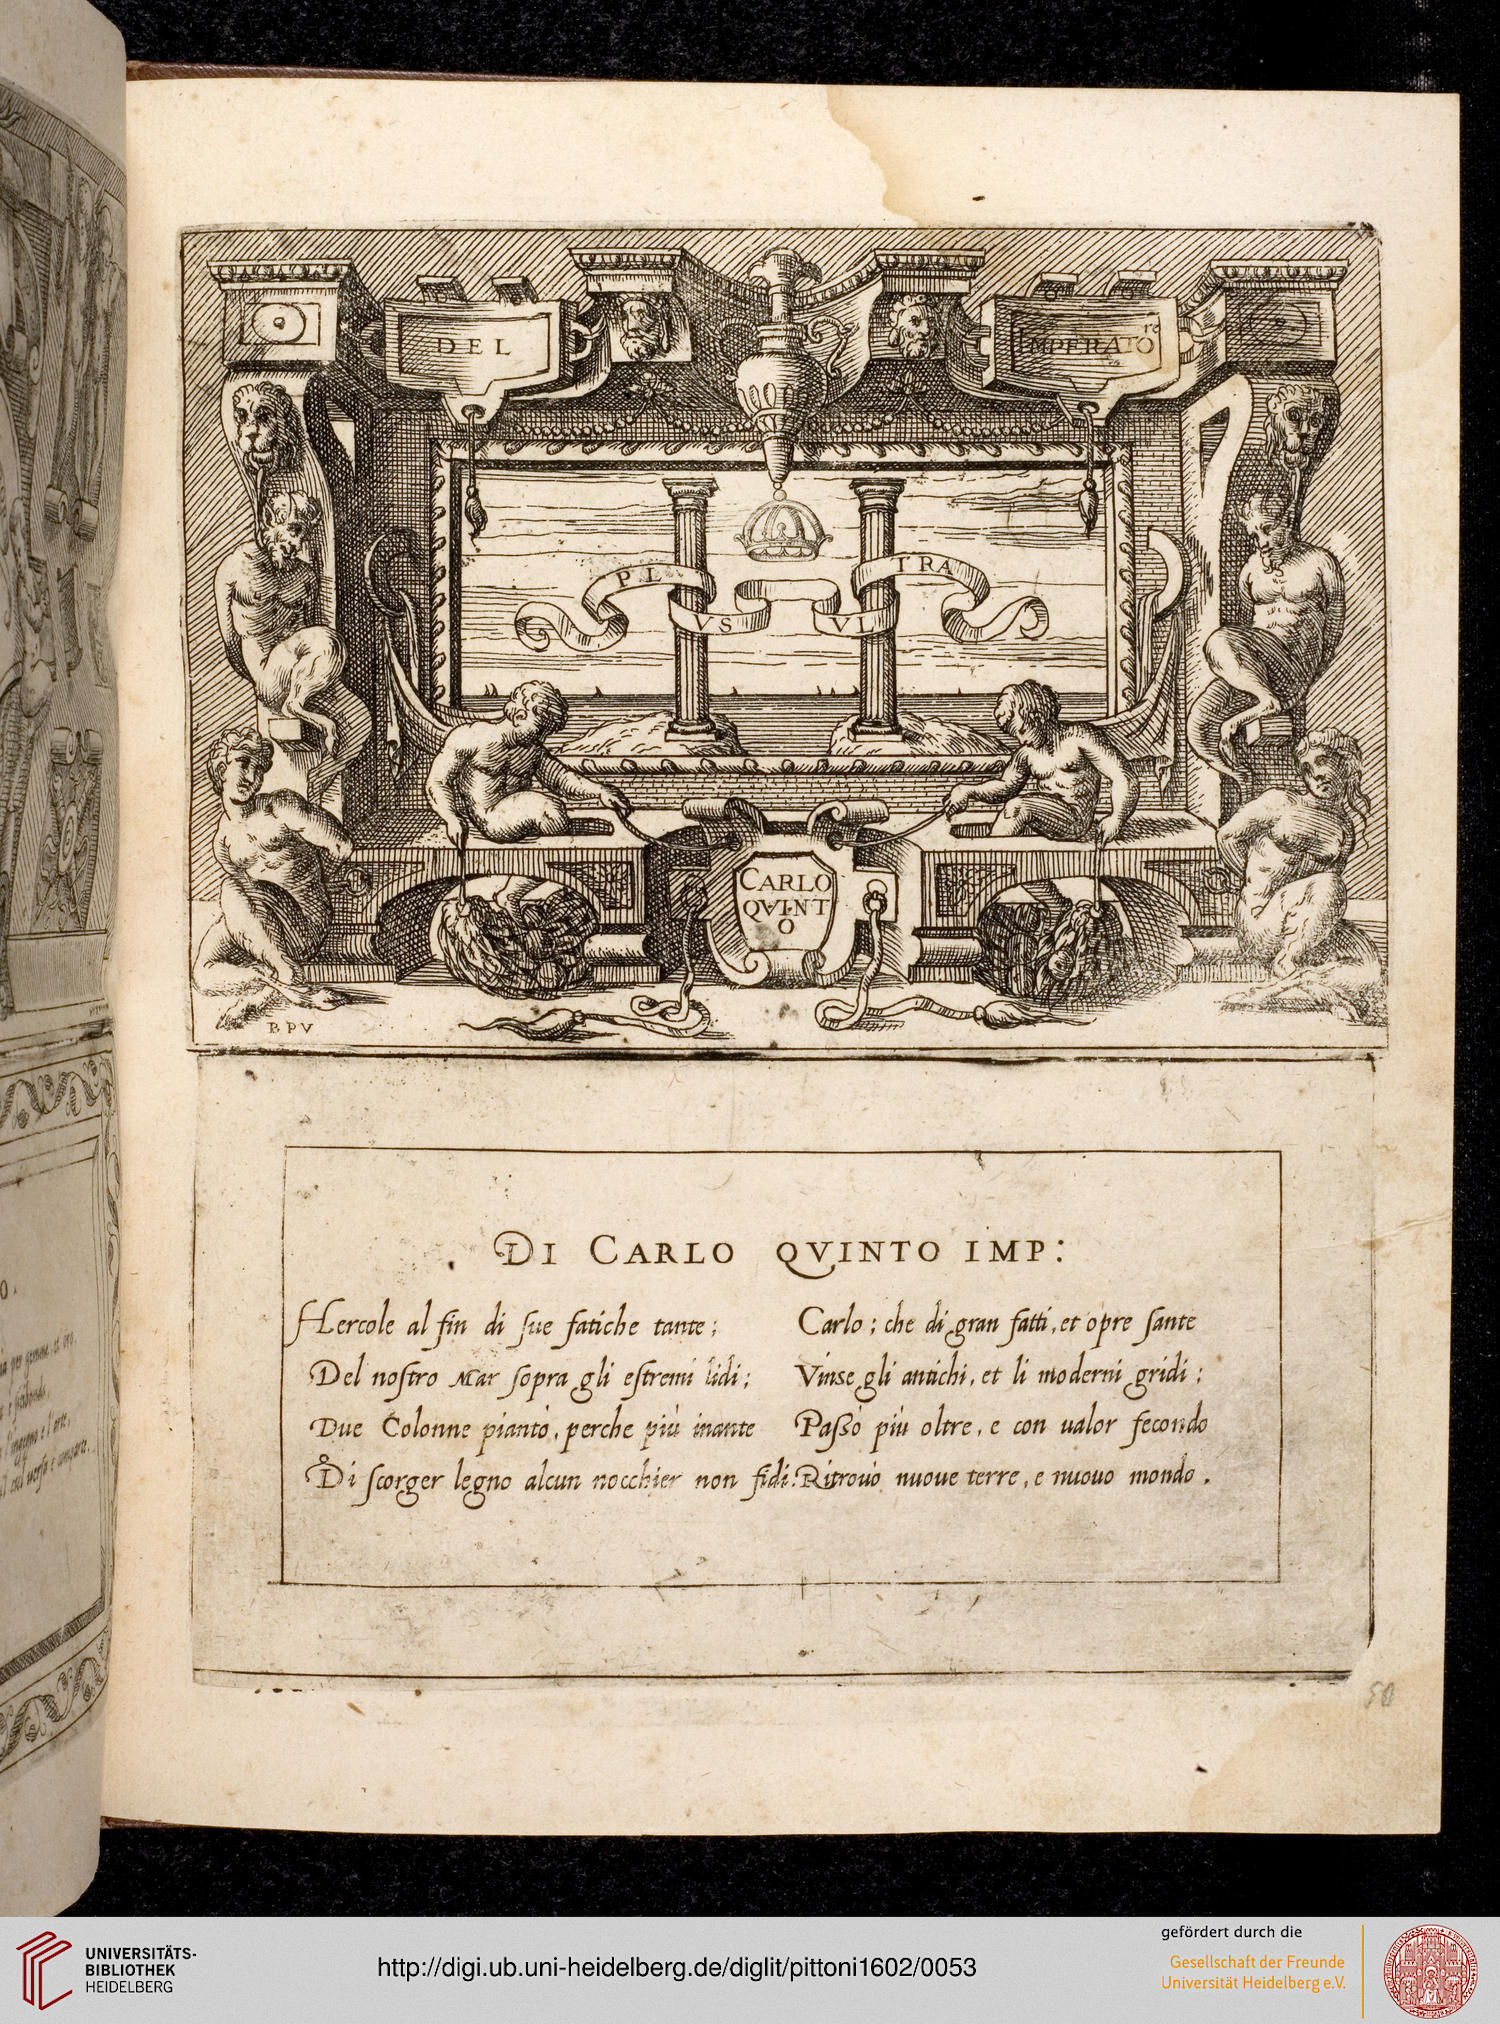 DEL
IMPERATO re
PLVS VLTRA
CARLO
QVINT
O
B P V
DI CARLO QVINTO IMP:
Hercole al fin di sue fatiche tante;
Del nostro Mar sopra gli estremi lidi;
Due Colonne piantò, perche più inante
Di scorger legno alcun nocchier non fidi.
Carlo; che di gran fatti, et opre sante
Vinse gli antichi, et li moderni gridi;
Passò più oltre, e con ualor fecondo
Ritrouò nuoue terre, e nuouo mondo.
50
UNIVERSITÄTS-
BIBLIOTHEK
HEIDELBERG
http://digi.ub.uni-heidelberg.de/diglit/pittoni1602/0053
gefördert durch die
Gesellschaft der Freunde
Universität Heidelberg e.V.